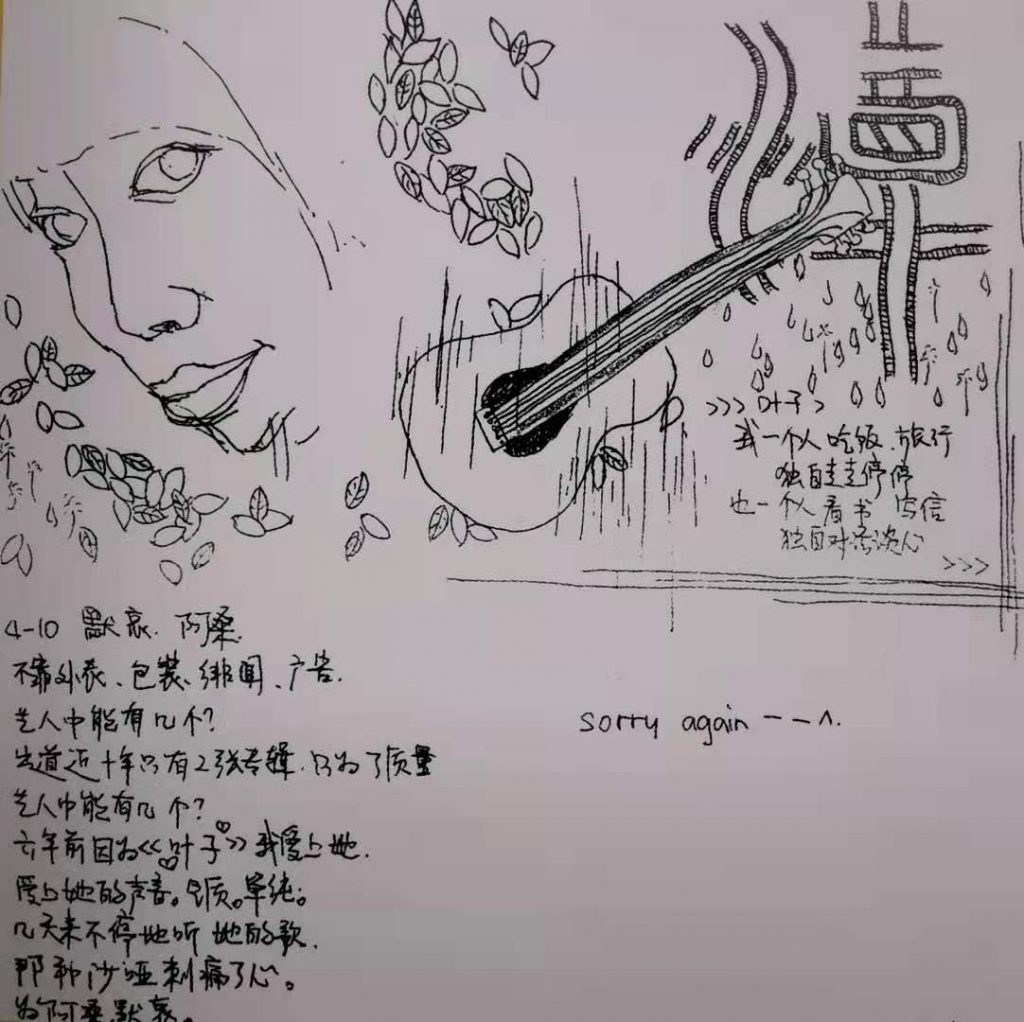 >>>叶子>
我一个人吃饭.旅行
独自走走停停
也一个人看书 写信
独自对话谈心
>>>
4-10 默哀. 阿桑.
不靠外表、包装、绯闻、广告.
艺人中能有几个?
出道近十年只有2张专辑.只为了质量
艺人中能有几个?
六年前因为<<叶子>>我爱上她.
爱上她的声音。气质。单纯。
几天来不停地听她的歌.
那种沙哑刺痛了心。
为阿桑默哀。
sorry again --^.